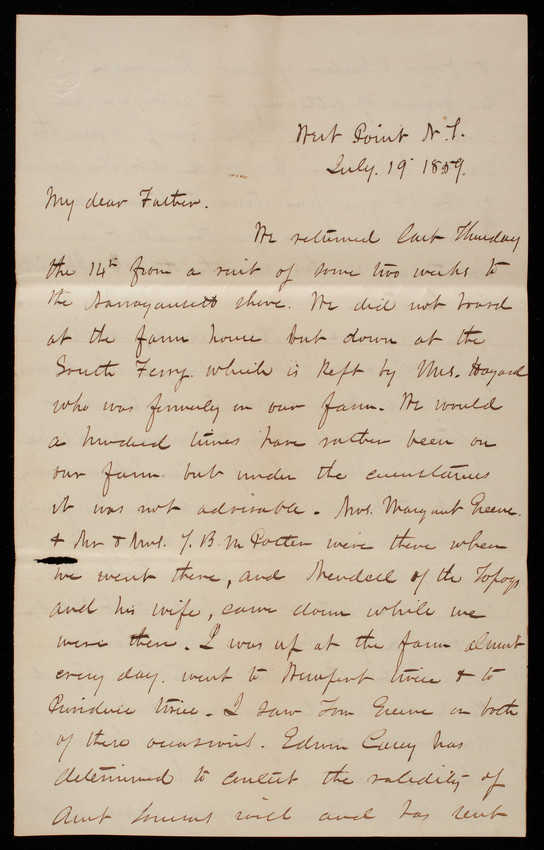 West Point N.Y.
July. 19 1859.
My dear Father.
We returned last Thursday
the 14th from a visit of some two weeks to
the Narragansett shore. We did not board
at the farm house but down at the
South Ferry which is kept by Mrs. Hazard
who was formerly on our farm. We would
a hundred times have rather been on
our farm but under the circumstances
it was not advisable. Mrs. Margaret Greene.
& Mr & Mrs. T. B. M Potter were there when
we went there, and Mendell of the Topogs
and his wife, came down while we
were there. I was up at the farm almost
every day. went to Newport twice & to
Providence twice. I saw Tom Greene on both
of these occasions. Edwin Casey has
determined to contest the validity of
Aunt will and has sent